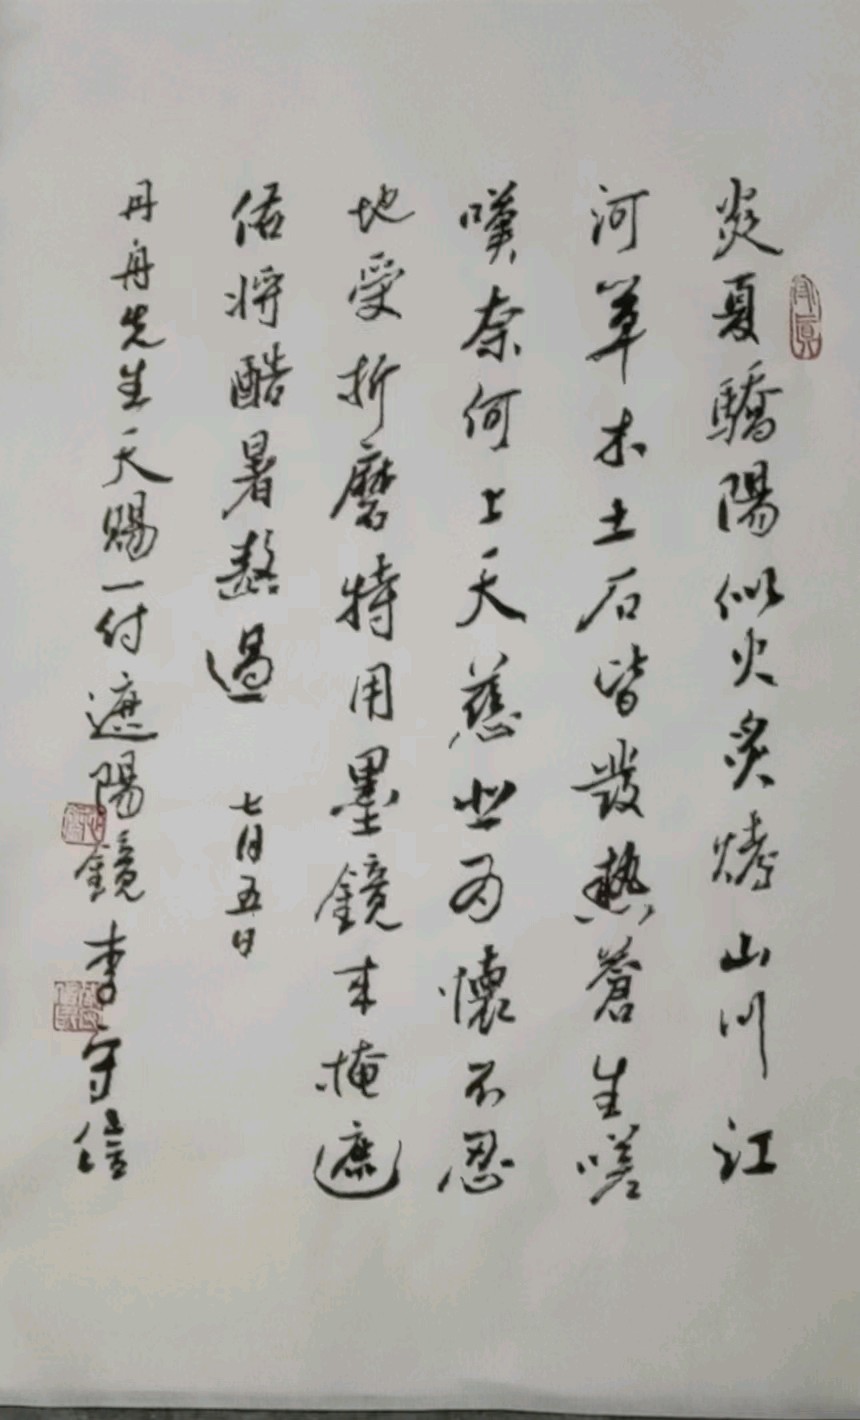 炎夏驕陽似火炙烤山川江
河草木土石皆發熱蒼生嗟
嘆奈何上天慈悲為懷不忍
地受折磨特用墨鏡来掩遮
偌将酷暑熬過
七月五日
丹舟先生天賜一付遮陽鏡李守信